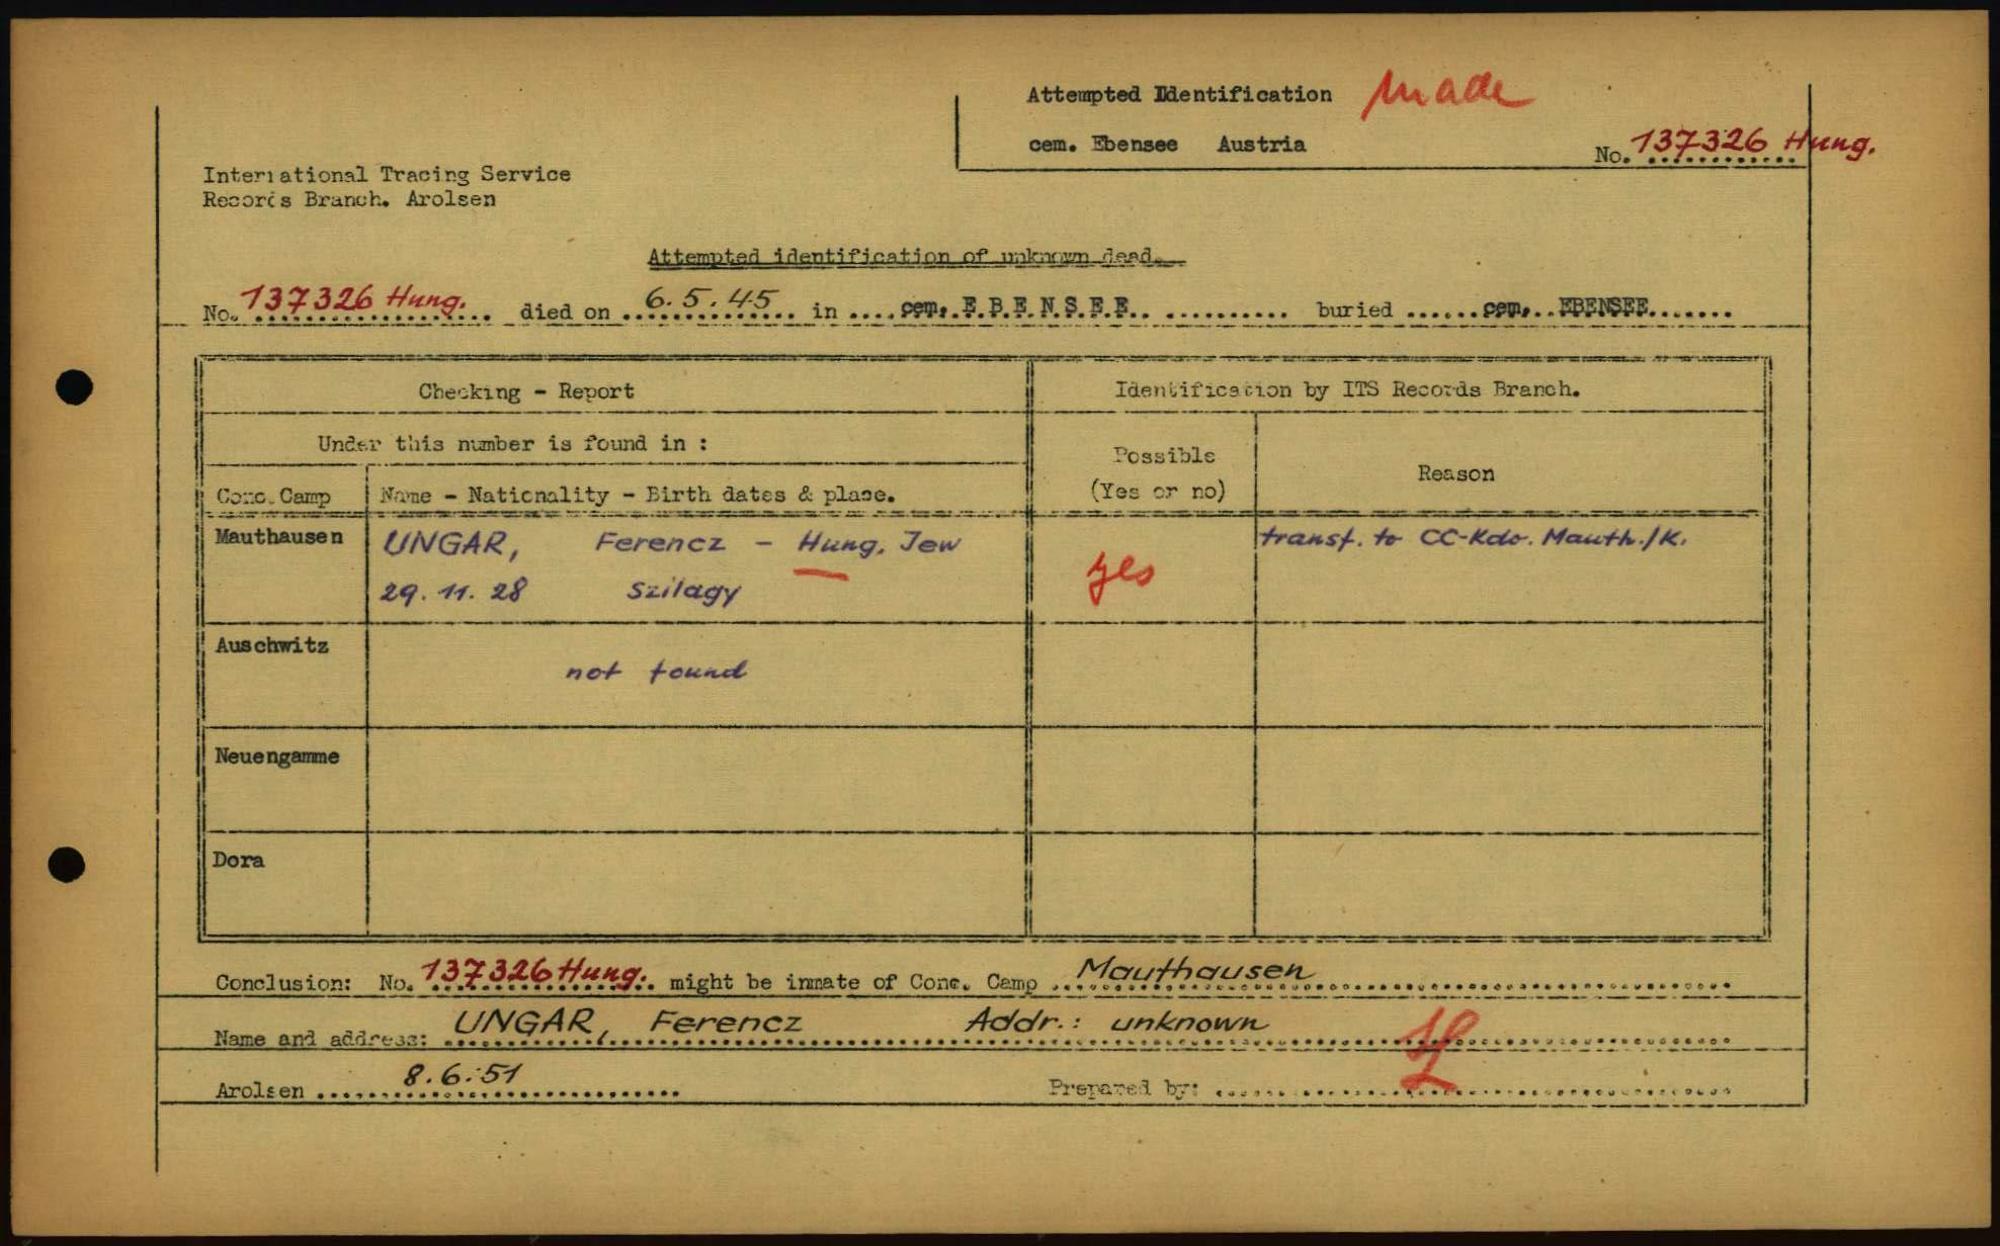 Attempted Identification made
cem. Ebensee Austria
No. 137326 Hung.
International Tracing Service
Records Branch. Arolsen
Attempted identification of unknown dead.
No. 137326 Hung. died on 6.5.45 in cem. E.B.E.N.S.E.E. buried cem. EBENSEE
Checking - Report
Identification by ITS Records Branch.
Under this number is found in :
Possible
(Yes or no)
Reason
Conc. Camp
Name - Nationality - Birth dates & place.
Mauthausen
UNGAR, Ferencz - Hung. Jew
29.11.28 Szilagy
yes
transf. to CC-Kdo. Mauth./K.
Auschwitz
not found
Neuengamme
Dora
Conclusion: No. 137326 Hung. might be inmate of Conc. Camp Mauthausen
Name and address: UNGAR, Ferencz Addr.: unknown
Arolsen 8.6.51
Prepared by: